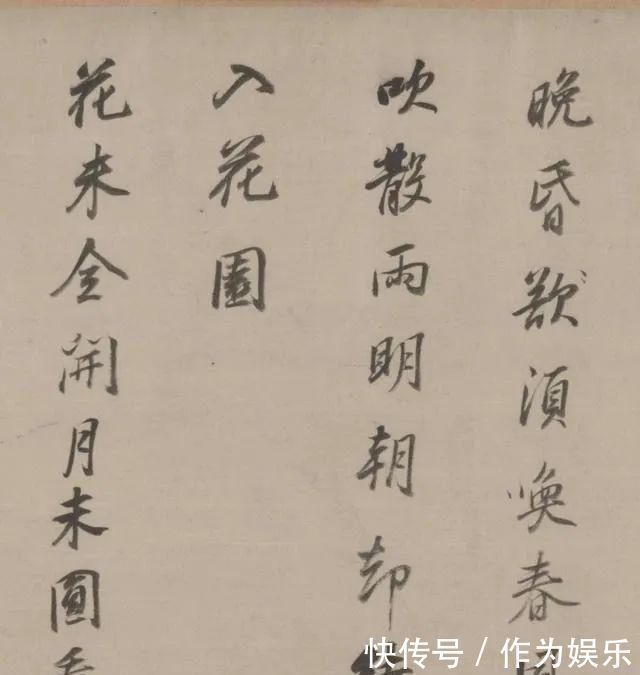 晚昏須喚春
吹散雨明朝却
入花園
花未全開月未圓
快传号 / 作为娱乐